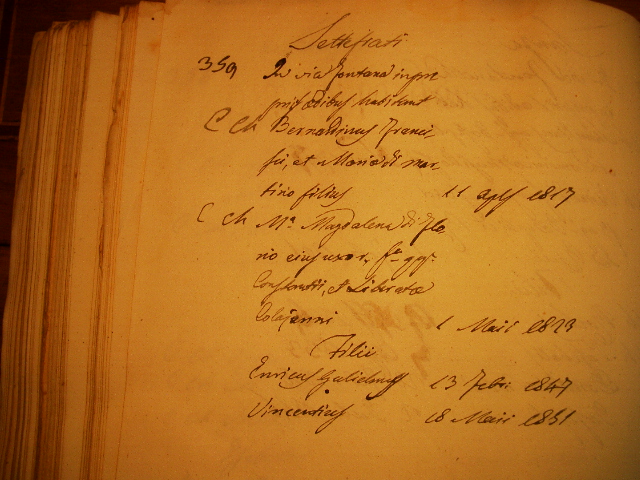 Settefrati
359 In via fontana in pro
prijs ædibus habitant
C Ch Bernardinus Franci-
sci, et Mariæ di mar-
tino filius 11 aplis 1817
C Ch Ma Magdalena di flo
rio ejus uxor, fa qqm
Constantii, et Liberatæ
Colajanni 1 Maii 1823
Filii
Enricus Gulielmus 13 Febri 1847
Vincentius 18 Maii 1851